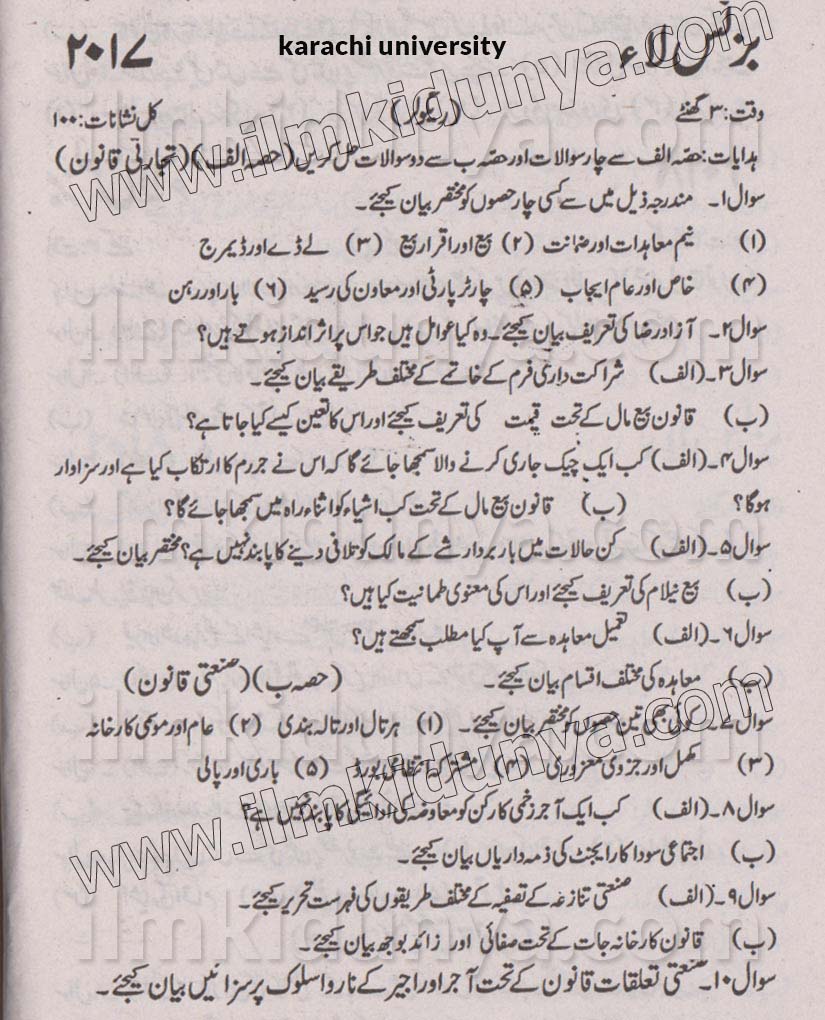 بزنس لاء karachi university ۲۰۱۷
وقت: ۳ گھنٹے (ریگولر) کل نشانات: ۱۰۰
ہدایات: حصہ الف سے چار سوالات اور حصہ ب سے دو سوالات حل کریں (حصہ الف) (تجارتی قانون)
سوال ۱۔ مندرجہ ذیل میں سے کسی چار حصوں کو مختصر بیان کیجئے۔
(۱) نیم معاہدات اور ضمانت (۲) بیع اور اقرار بیع (۳) لے ڈے اور ڈیمرج
(۴) خاص اور عام ایجاب (۵) چارٹر پارٹی اور معاون کی رسید (۶) بار اور رہن
سوال ۲۔ آزاد رضا کی تعریف بیان کیجئے۔ وہ کیا عوامل ہیں جو اس پر اثر انداز ہوتے ہیں؟
سوال ۳۔ (الف) شراکت داری فرم کے خاتمے کے مختلف طریقے بیان کیجئے۔
(ب) قانون بیع مال کے تحت قیمت کی تعریف کیجئے اور اس کا تعین کیسے کیا جاتا ہے؟
سوال ۴۔ (الف) کب ایک چیک جاری کرنے والا سمجھا جائے گا کہ اس نے جررم کا ارتکاب کیا ہے اور سزاوار
ہوگا؟ (ب) قانون بیع مال کے تحت کب اشیاء کو اثناء راہ میں سمجھا جائے گا؟
سوال ۵۔ (الف) کن حالات میں باربردار شے کے مالک کو تلافی دینے کا پابند نہیں ہے؟ مختصر بیان کیجئے۔
(ب) بیع نیلام کی تعریف کیجئے اور اس کی معنوی طمانیت کیا ہیں؟
سوال ۶۔ (الف) تعمیل معاہدہ سے آپ کیا مطلب سمجھتے ہیں؟
(ب) معاہدہ کی مختلف اقسام بیان کیجئے۔ (حصہ ب) (صنعتی قانون)
سوال ۷۔ کوئی بھی تین حصوں کو مختصر بیان کیجئے۔ (۱) ہرتال اور تالہ بندی (۲) عام اور موسمی کارخانہ
(۳) مکمل اور جزوی معزوری (۴) مشترکہ انتظامی بورڈ (۵) باری اور پالی
سوال ۸۔ (الف) کب ایک آجر زخمی کارکن کو معاوضہ کی ادائیگی کا پابند نہیں ہے؟
(ب) اجتماعی سودا کار ایجنٹ کی ذمہ داریاں بیان کیجئے۔
سوال ۹۔ (الف) صنعتی تنازعہ کے تصفیہ کے مختلف طریقوں کی فہرست تحریر کیجئے۔
(ب) قانون کارخانہ جات کے تحت صفائی اور زائد بوجھ بیان کیجئے۔
سوال ۱۰۔ صنعتی تعلقات قانون کے تحت آجر اور اجیر کے ناروا سلوک پر سزائیں بیان کیجئے۔
www.ilmkidunya.com
www.ilmkidunya.com
ilmkidunya.com
ilmkidunya.com
ilmkidunya.com
ilmkidunya.com
ilmkidunya.com